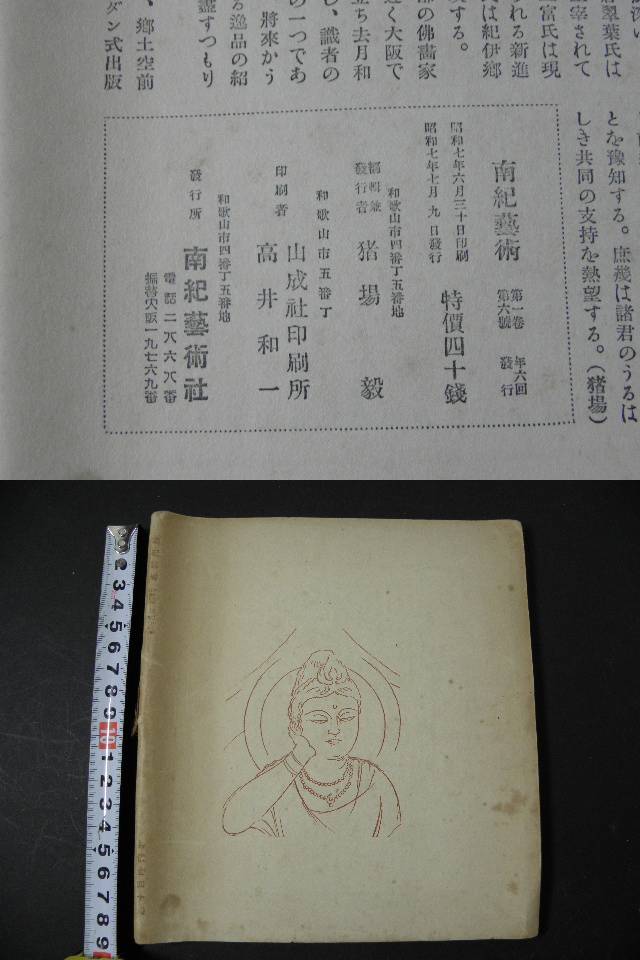 翠葉氏は
宰されて
富氏は現
れる新進
氏は紀伊郷
部の佛畫家
する。
近く大阪で
立ち去月和
し、識者の
の一つであ
將來かう
る逸品の紹
盡すつもり
、鄕土空前
ダン式出版
とを豫知する。庶幾は諸君のうるは
しき共同の支持を熱望する。（猪場）
南紀藝術 第一卷 第六號 年六回 發行
昭和七年六月三十日印刷
昭和七年七月九日發行
特價四十錢
和歌山市四番丁五番地
編輯兼
發行者 猪場 毅
和歌山市五番丁
山成社印刷所
印刷者 高井和一
和歌山市四番丁五番地
發行所 南紀藝術社
電話二八六八番
振替大阪一九七六九番
2 3 4 5 6 7 8 9 10 1 2 3 4 5 6 7 8 9